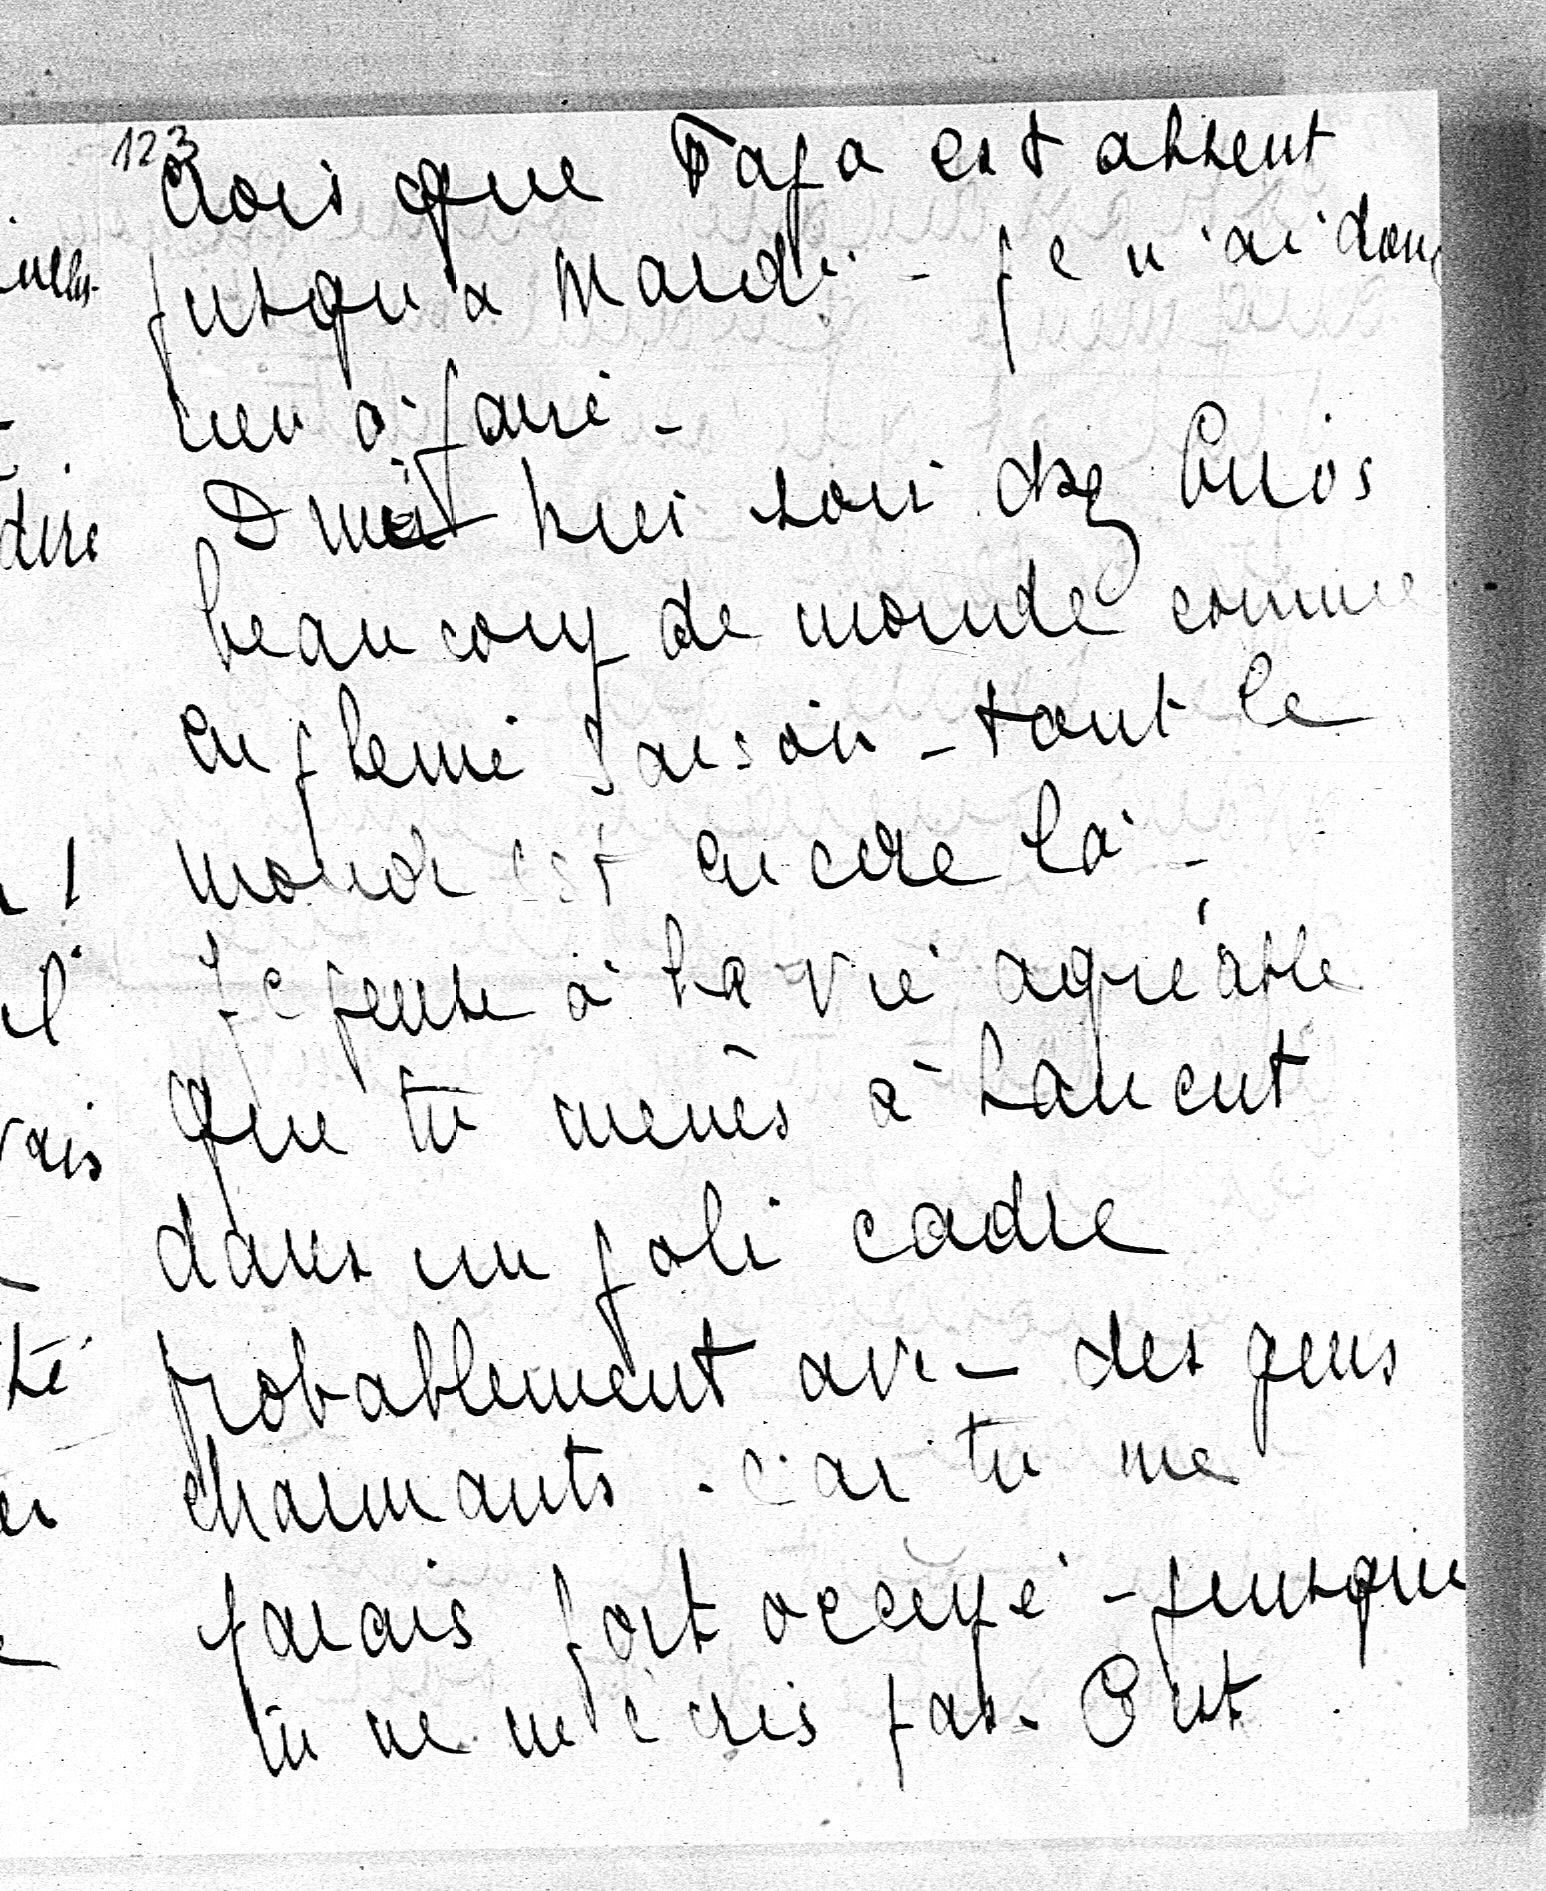 123
crois que Papa est absent
jusqu'à Mardi - je n'ai donc
rien à faire -
hier soir chez
beaucoup de monde comme
en pleine saison - tout le
monde est encore là -
Je pense à la vie agréable
que tu mènes à Lancut
dans un joli cadre
probablement avec des gens
charmants. Car tu me
parais fort occupé - puisque
tu ne m'écris pas. C'est